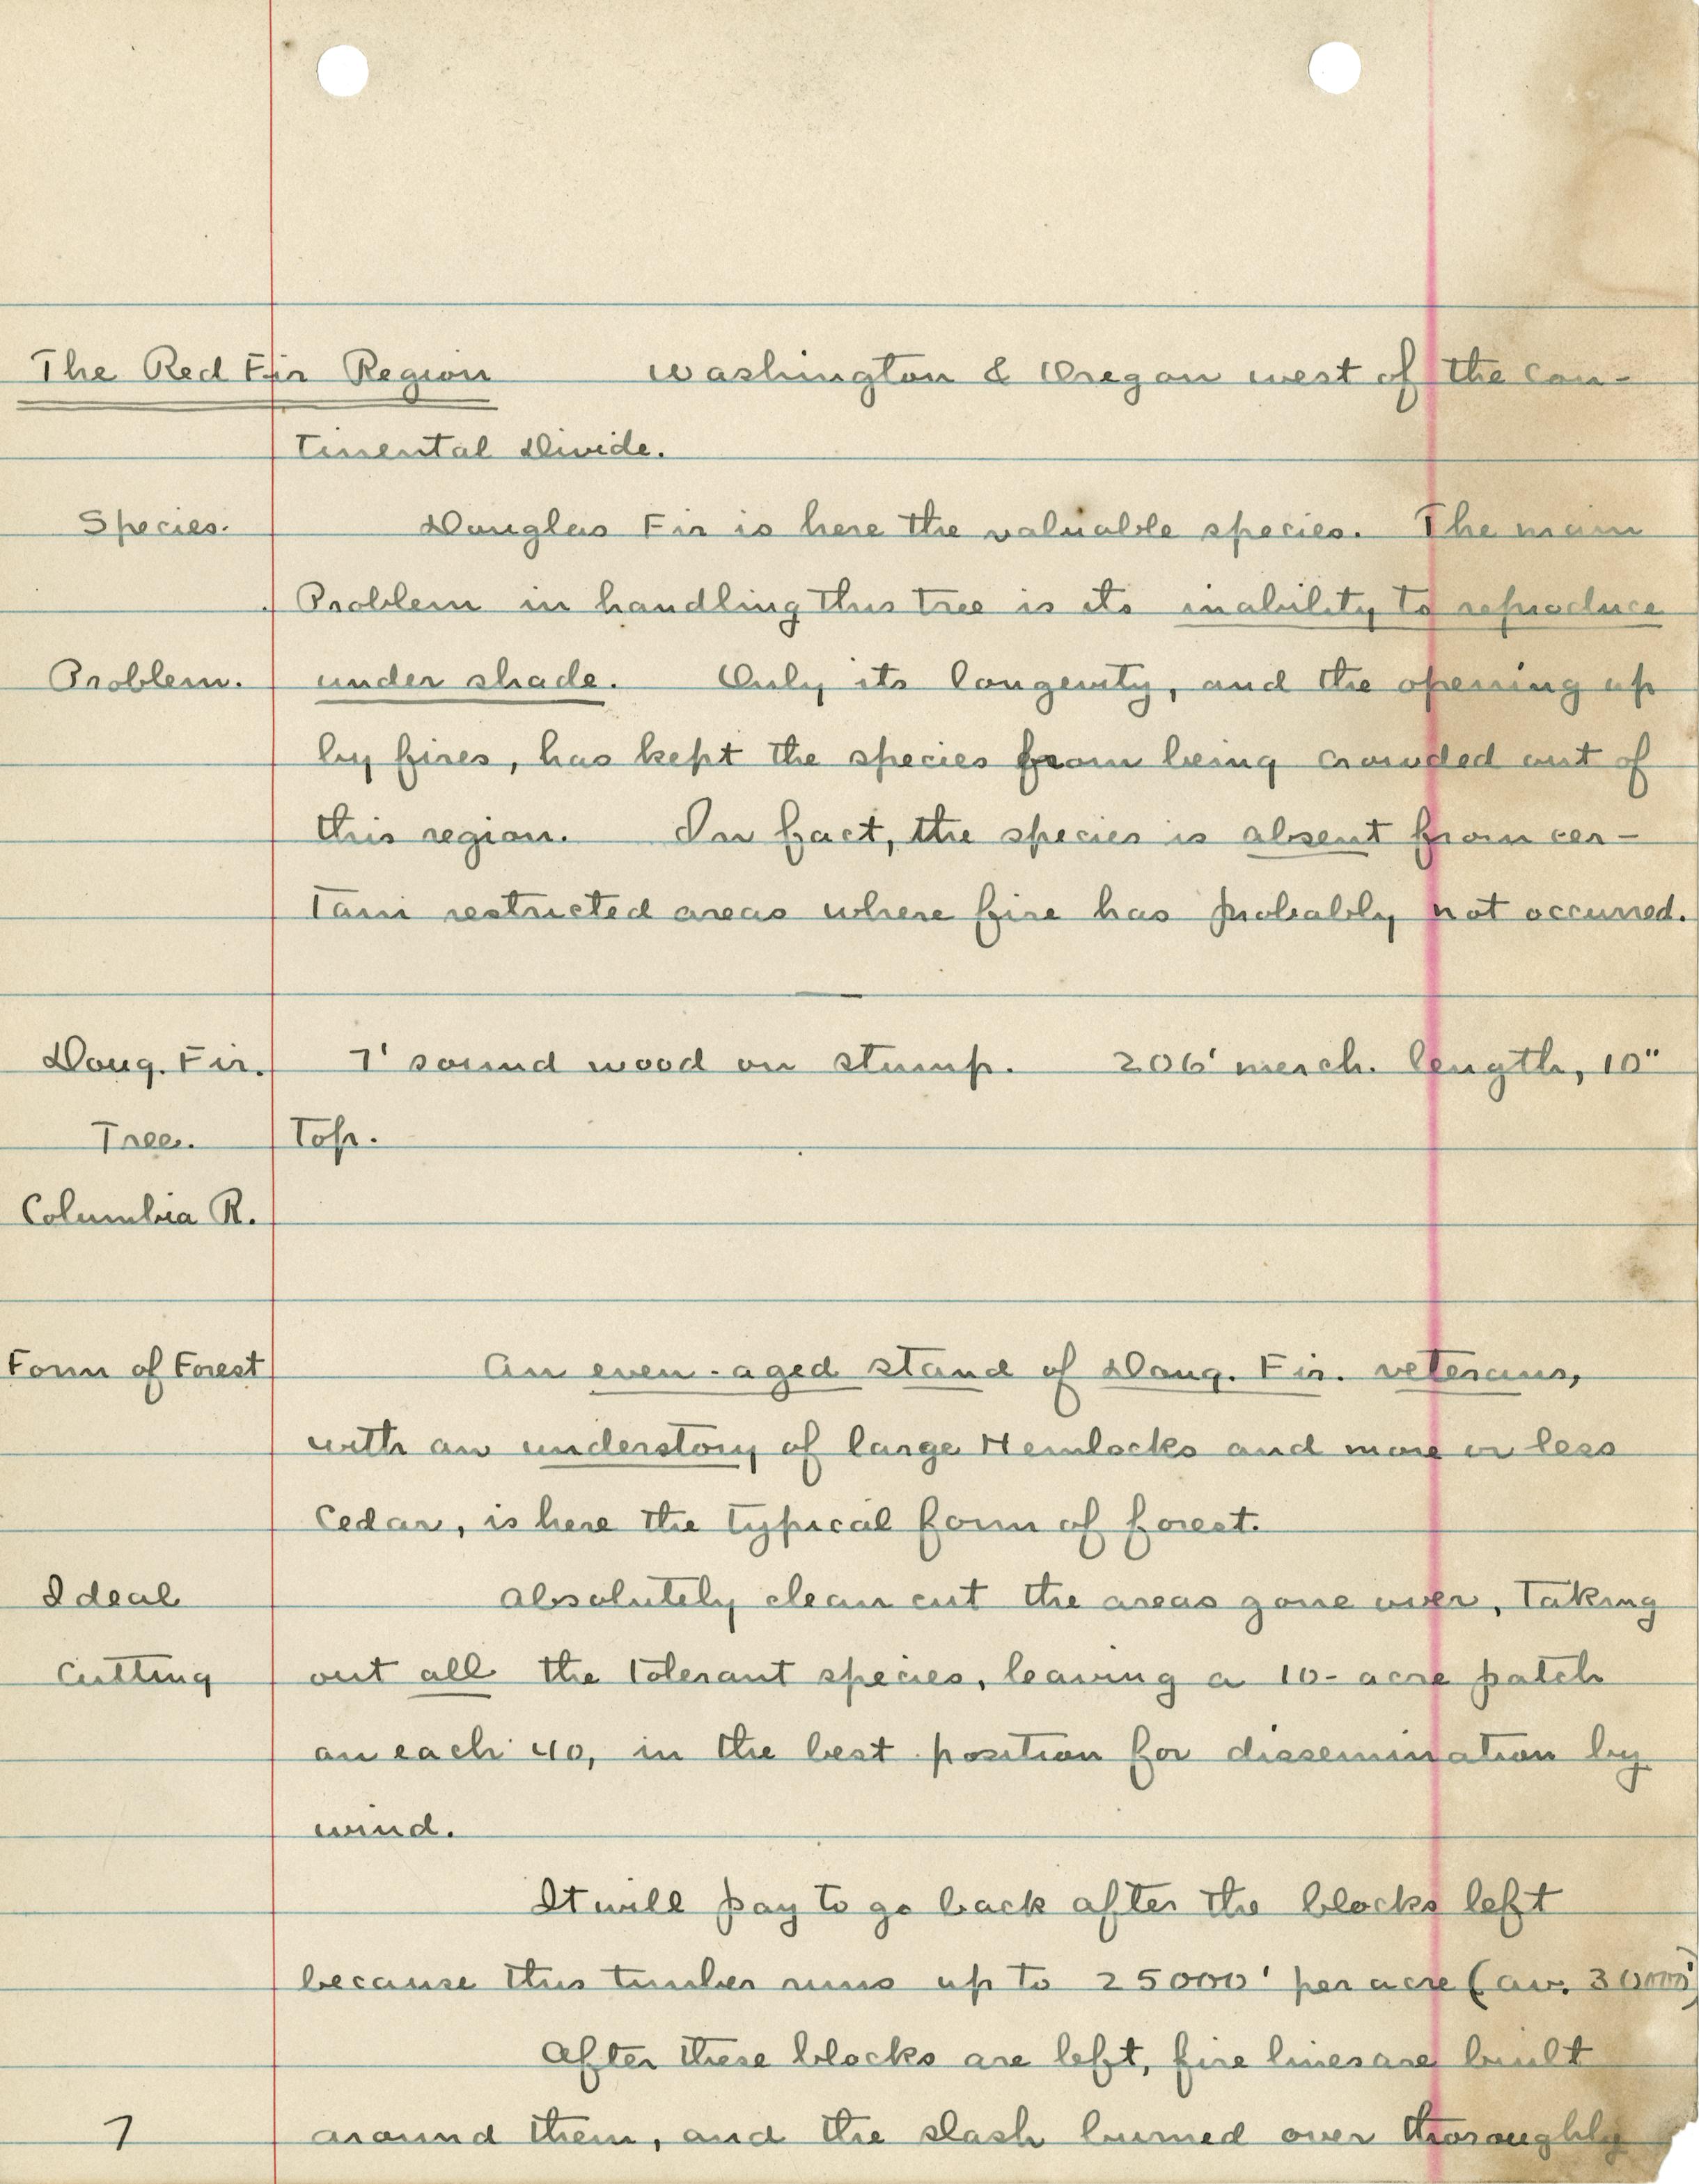 The Red Fir Region Washington & Oregon west of the Con-
tinental Divide.
Species. Douglas Fir is here the valuable species. The main
Problem in handling this tree is its inability to reproduce
Problem. under shade. Only its longevity, and the opening up
by fires, has kept the species from being crowded out of
this region. In fact, the species is absent from cer-
tain restricted areas where fire has probably not occurred.
Doug. Fir. 7' sound wood on stump. 206' merch. length, 10"
Tree. Top.
Columbia R.
Form of Forest An even-aged stand of Doug. Fir. veterans,
with an understory of large Hemlocks and more or less
Cedar, is here the typical form of forest.
Ideal Absolutely clean cut the areas gone over, taking
Cutting out all the tolerant species, leaving a 10-acre patch
on each 40, in the best position for dissemination by
wind.
It will pay to go back after the blocks left
because this timber runs up to 25000' per acre (av.
After these blocks are left, fire lines are built
7 around them, and the slash burned over thoroughly